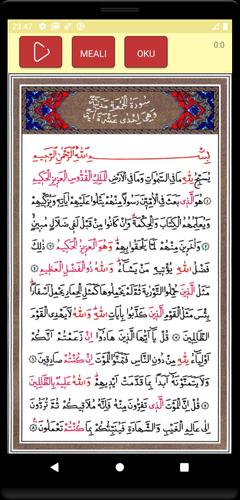 23:47
MEALİ
OKU
0:0
سُورَةُ الْجُمُعَةِ مَدَنِيَّةٌ
وَهِيَ اِحْدٰى عَشْرَةَ اٰيَةً
بِسْمِ اللّٰهِ الرَّحْمٰنِ الرَّحِيمِ
يُسَبِّحُ لِلّٰهِ مَا فِى السَّمٰوَاتِ وَمَا فِى الْاَرْضِ الْمَلِكِ الْقُدُّوسِ الْعَزِيزِ الْحَكِيمِ
هُوَ الَّذِى بَعَثَ فِى الْاُمِّيِّنَ رَسُولًا مِنْهُمْ يَتْلُوا عَلَيْهِمْ اٰيَاتِهِ وَيُزَكِّيهِمْ
وَيُعَلِّمُهُمُ الْكِتَابَ وَالْحِكْمَةَ وَاِنْ كَانُوا مِنْ قَبْلُ لَفِى ضَلَالٍ مُبِينٍ
وَاٰخَرِينَ مِنْهُمْ لَمَّا يَلْحَقُوا بِهِمْ وَهُوَ الْعَزِيزُ الْحَكِيمُ ذٰلِكَ
فَضْلُ اللّٰهِ يُؤْتِيهِ مَنْ يَشَاءُ وَاللّٰهُ ذُو الْفَضْلِ الْعَظِيمِ
مَثَلُ الَّذِينَ حُمِّلُوا التَّوْرٰيةَ ثُمَّ لَمْ يَحْمِلُوهَا كَمَثَلِ الْحِمَارِ يَحْمِلُ اَسْفَارًا
بِئْسَ مَثَلُ الْقَوْمِ الَّذِينَ كَذَّبُوا بِاٰيَاتِ اللّٰهِ وَاللّٰهُ لَا يَهْدِى الْقَوْمَ
الظَّالِمِينَ قُلْ يَا اَيُّهَا الَّذِينَ هَادُوا اِنْ زَعَمْتُمْ اَنَّكُمْ
اَوْلِيَاءُ لِلّٰهِ مِنْ دُونِ النَّاسِ فَتَمَنَّوُا الْمَوْتَ اِنْ كُنْتُمْ صَادِقِينَ
وَلَا يَتَمَنَّوْنَهُ اَبَدًا بِمَا قَدَّمَتْ اَيْدِيهِمْ وَاللّٰهُ عَلِيمٌ بِالظَّالِمِينَ
قُلْ اِنَّ الْمَوْتَ الَّذِى تَفِرُّونَ مِنْهُ فَاِنَّهُ مُلَاقِيكُمْ ثُمَّ تُرَدُّونَ
اِلٰى عَالِمِ الْغَيْبِ وَالشَّهَادَةِ فَيُنَبِّئُكُمْ بِمَا كُنْتُمْ تَعْمَلُونَ